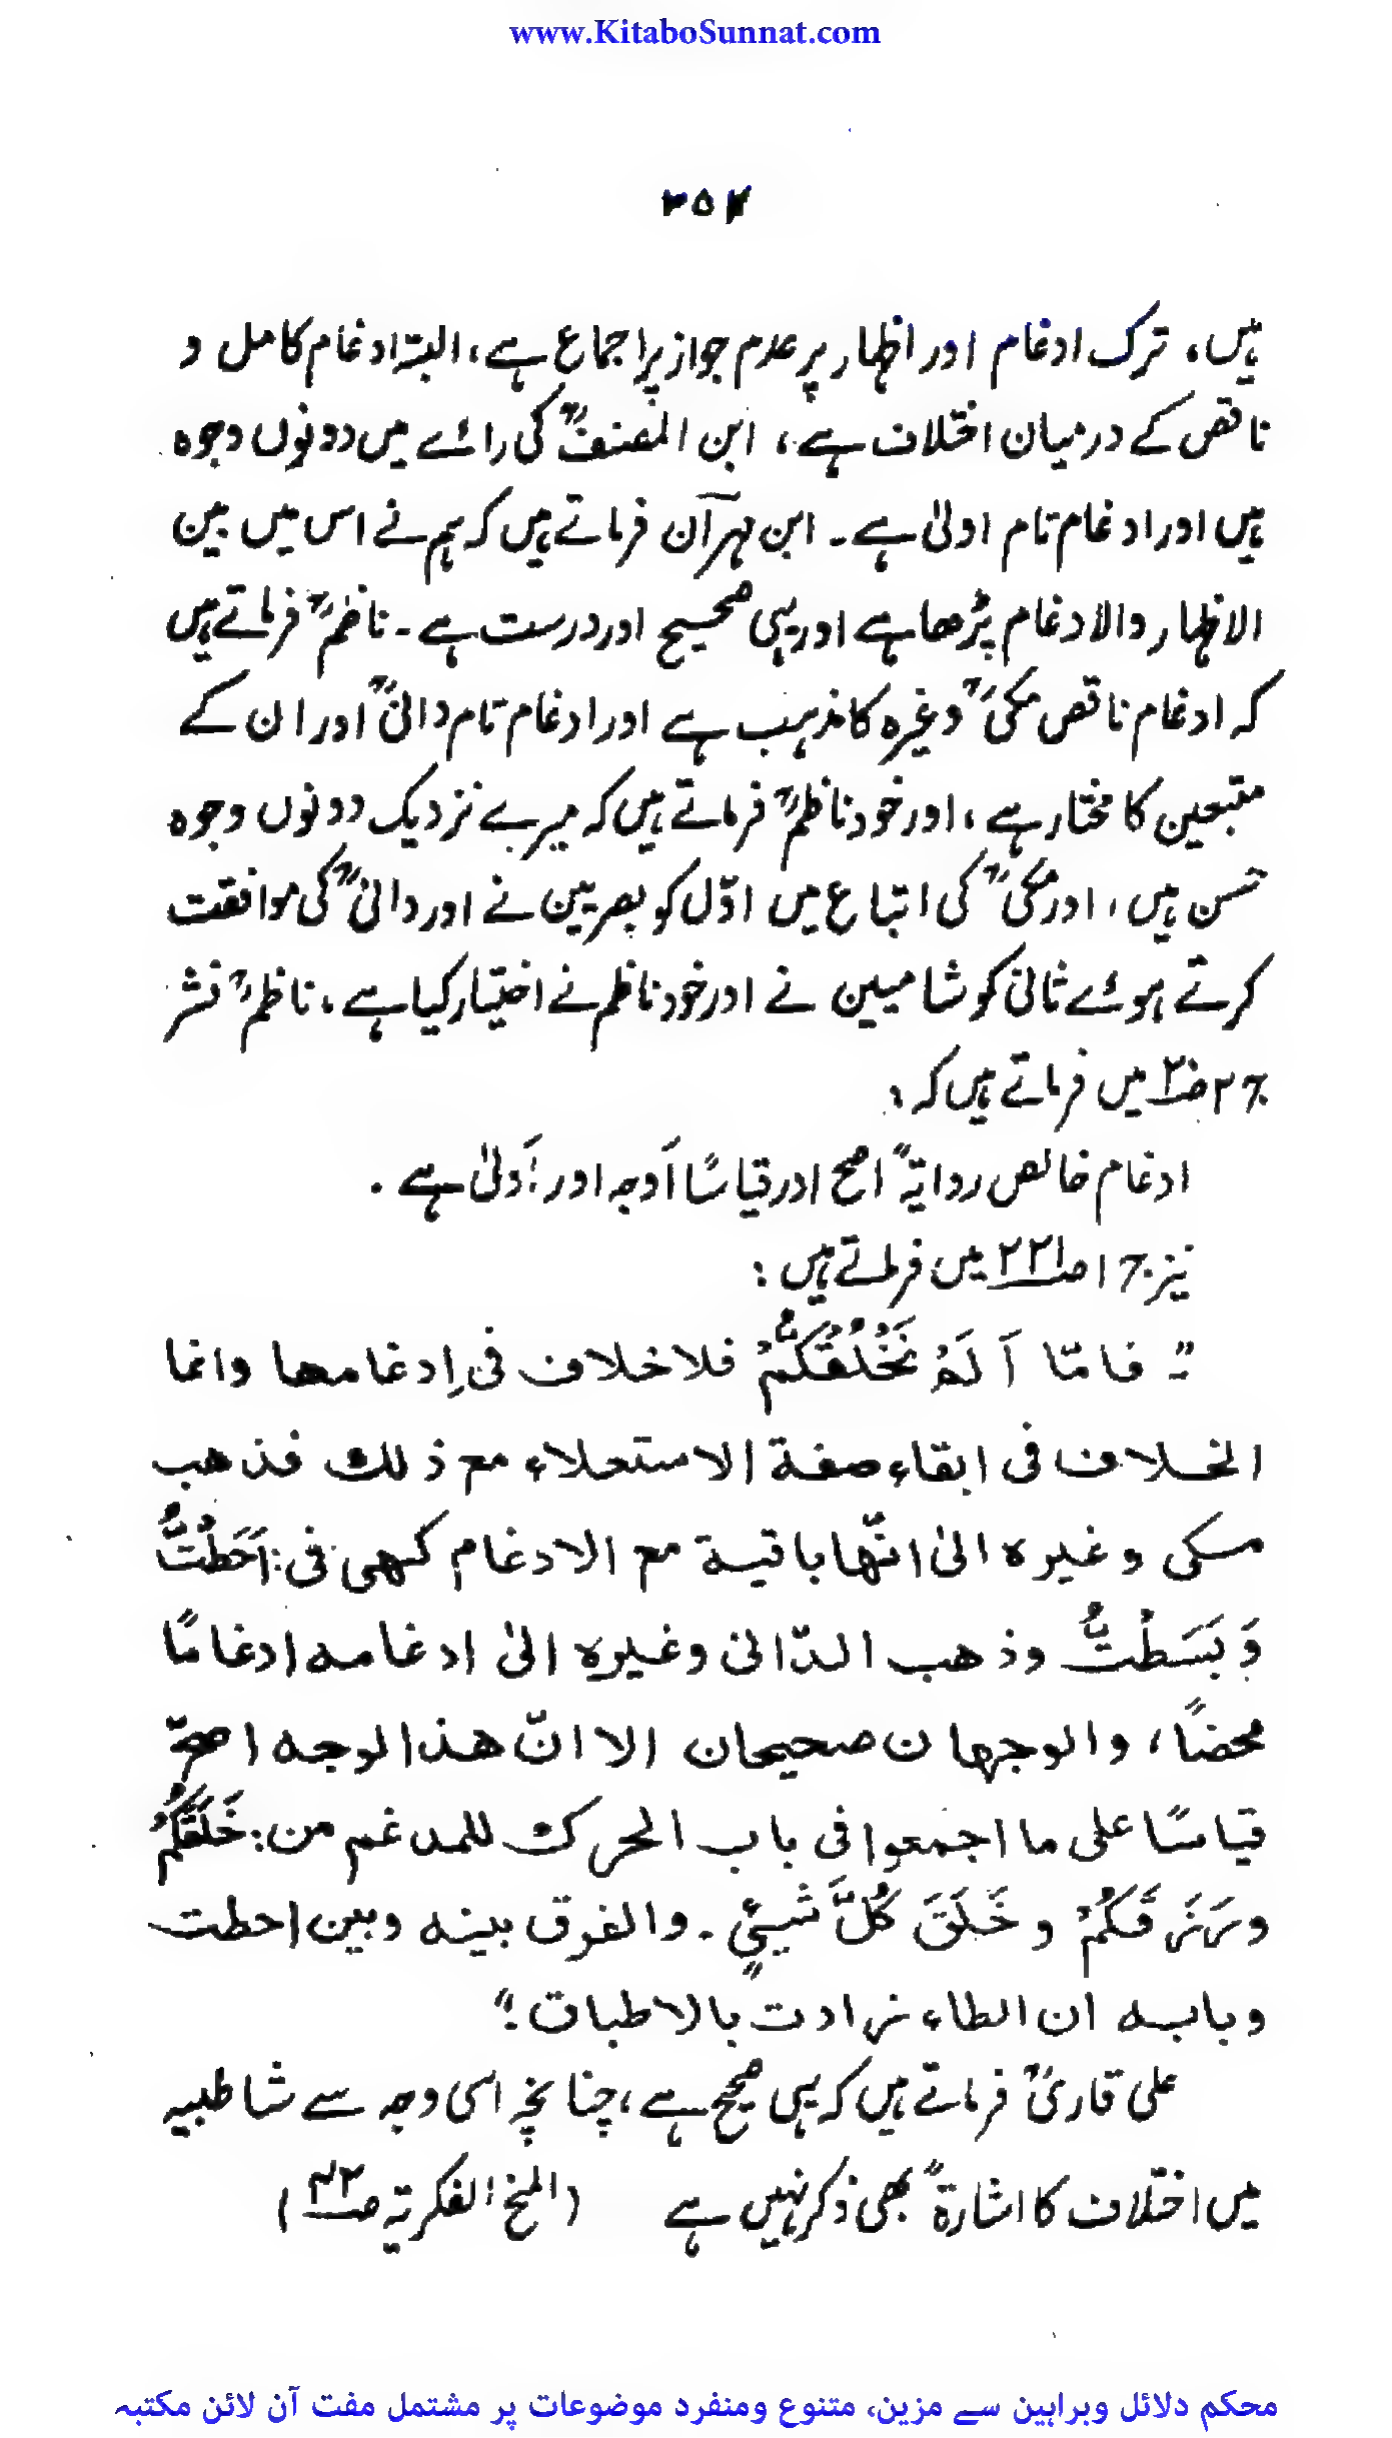 www.KitaboSunnat.com
ہیں، ترک ادغام اور اظہار پر عدم جواز پر اجماع ہے، البتہ ادغام کامل و
ناقص کے درمیان اختلاف ہے، ابن المصنفؒ کی رائے میں دونوں وجوہ
ہیں اور ادغام تام اولیٰ ہے۔ ابن مہرآن فرماتے ہیں کہ ہم نے اس میں بین
الاظہار والادغام پڑھا ہے اور یہی صحیح اور درست ہے۔ ناظمؒ فرماتے ہیں
کہ ادغام ناقص مکیؒ وغیرہ کا مذہب ہے اور ادغام تام دانیؒ اور ان کے
متبعین کا مختار ہے، اور خود ناظمؒ فرماتے ہیں کہ میرے نزدیک دونوں وجوہ
حسن ہیں، اور مکیؒ کی اتباع میں اوّل کو بصریین نے اور دانیؒ کی موافقت
کرتے ہوئے ثانی کو شامیین نے اور خود ناظم نے اختیار کیا ہے، ناظمؒ نشر
ج۲ ص۲۰ میں فرماتے ہیں کہ :
ادغام خالص روایۃً اصح اور قیاسًا اَوجہ اور اَولیٰ ہے۔
نیز ج۱ ص۲۲۱ میں فرماتے ہیں :
"۔ فامّا اَلَمْ نَخْلُقْكُّمْ فلا خلاف فی اِدغامها وانما
الخلاف فی ابقاء صفة الاستعلاء مع ذلك فذهب
مکی وغیره الیٰ انّها باقیة مع الادغام کهی فی: اَحَطْتُّ
وَبَسَطْتُّ وذهب الدّانی وغیره الیٰ ادغامه ادغامًا
محضًا، والوجهان صحیحان الا انّ هذا الوجه اصحّ
قیاسًا علی ما اجمعوا فی باب المحرك للمدغم من: خَلَقَكُّمْ
ورَزَقَكُمْ و خَلَقَ كُلَّ شَیْئٍ۔ والفرق بینه وبین احطت
وبابه ان الطاء زادت بالاطباق۔"
علی قاریؒ فرماتے ہیں کہ یہی صحیح ہے، چنانچہ اسی وجہ سے شاطبیہ
میں اختلاف کا اشارۃً بھی ذکر نہیں ہے (المنح الفکریۃ ص)
محکم دلائل وبراہین سے مزین، متنوع ومنفرد موضوعات پر مشتمل مفت آن لائن مکتبہ